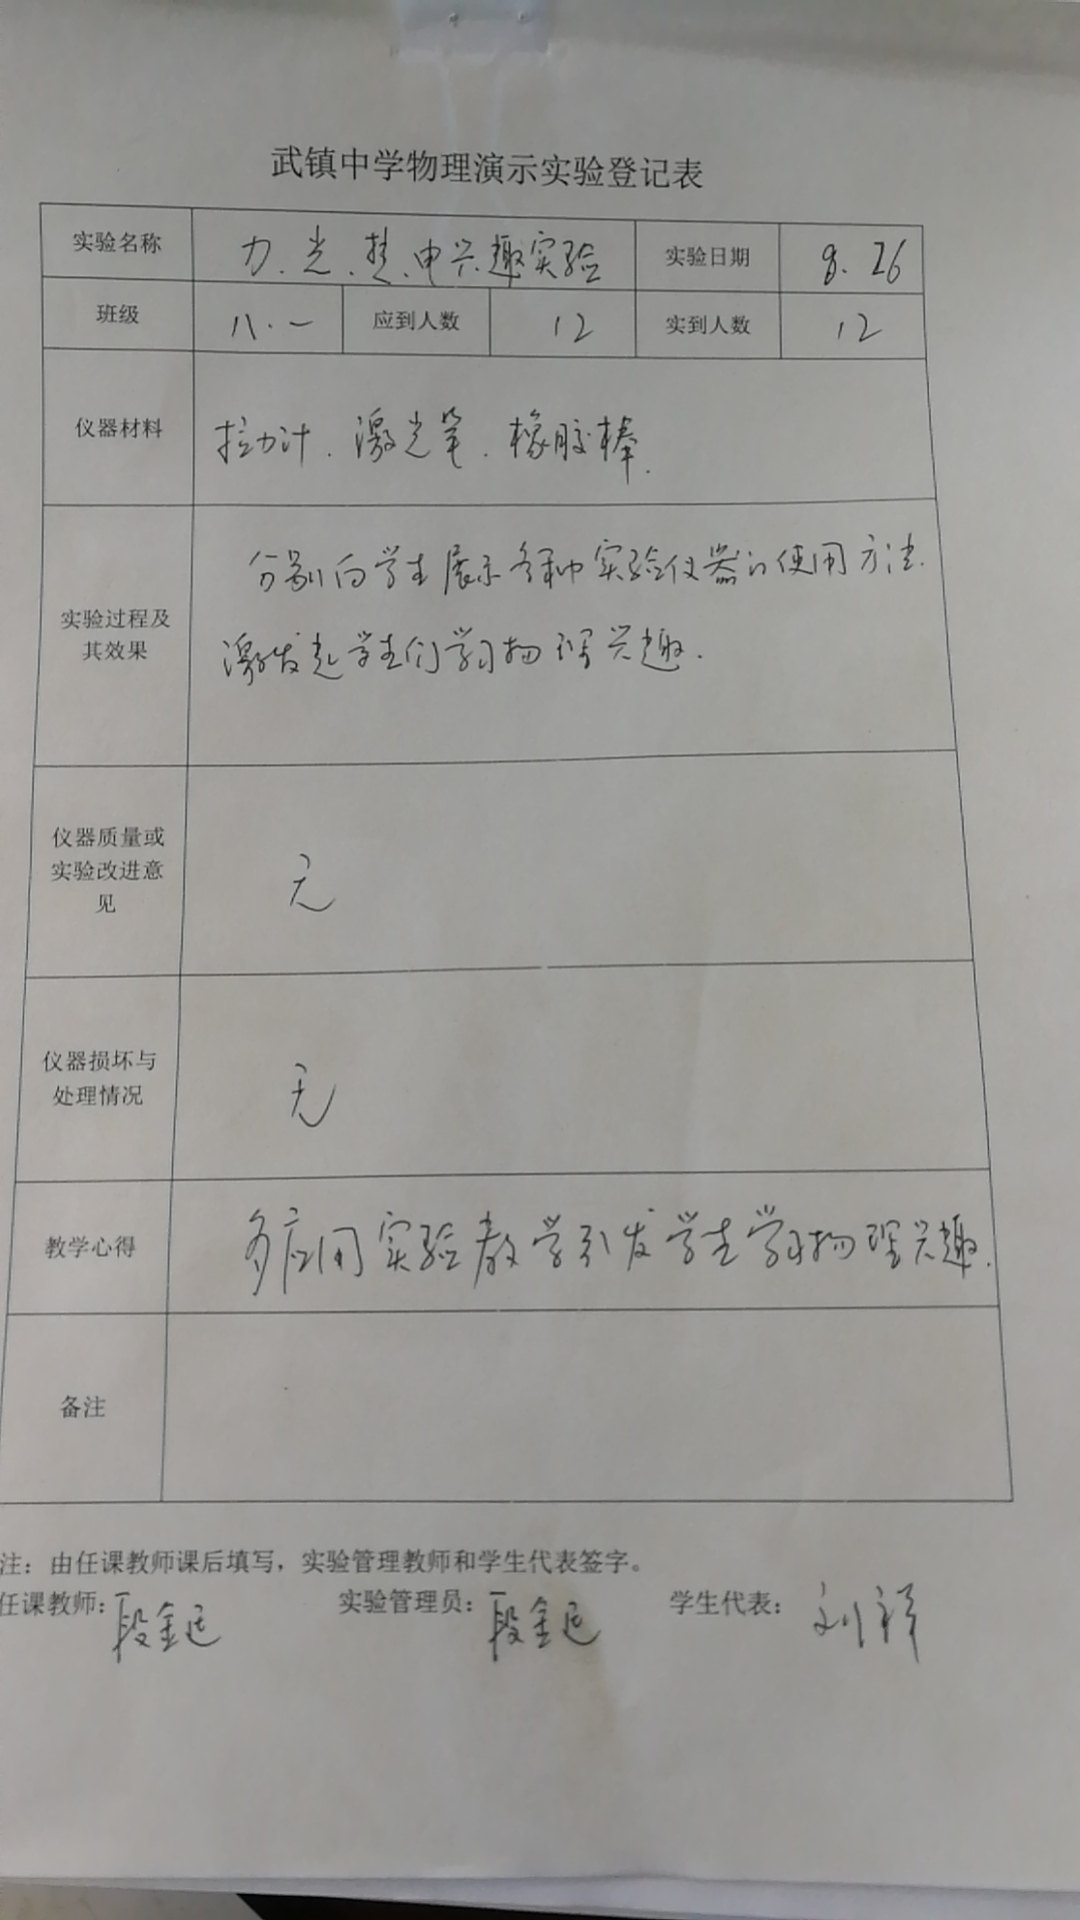 武镇中学物理演示实验登记表
实验名称 力、光、热、电兴趣实验 实验日期 8.26
班级 八.一 应到人数 12 实到人数 12
仪器材料 拉力计.激光笔.橡胶棒.
分别向学生展示各种实验仪器的使用方法.
实验过程及
其效果
激发起学生们学习物理兴趣.
仪器质量或
实验改进意
见
无
仪器损坏与
处理情况
无
教学心得 多应用实验教学引发学生学习物理兴趣.
备注
注：由任课教师课后填写，实验管理教师和学生代表签字。
任课教师：段金运 实验管理员：段金运 学生代表：刘祥